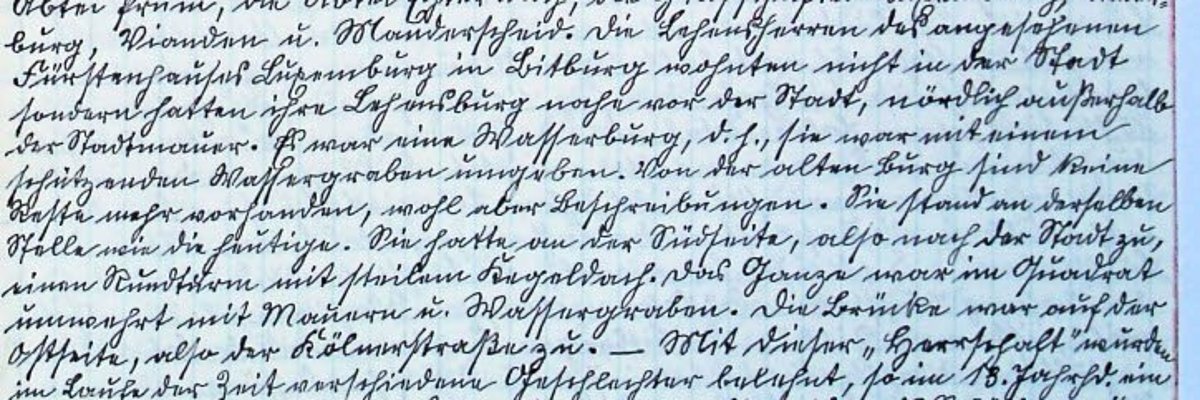 Abtei Prüm, die Abtei
burg, Vianden u. Manderscheid. Die Lehensherren des angesehenen
Fürstenhauses Luxemburg in Bitburg wohnten nicht in der Stadt
sondern hatten ihre Lehensburg nahe vor der Stadt, nördlich außerhalb
der Stadtmauer. Es war eine Wasserburg, d. h., sie war mit einem
schützenden Wassergraben umgeben. Von der alten Burg sind keine
Reste mehr vorhanden, wohl aber Beschreibungen. Sie stand an derselben
Stelle wie die heutige. Sie hatte an der Südseite, also nach der Stadt zu,
einen Rundturm mit steilem Kegeldach. Das Ganze war im Quadrat
umwehrt mit Mauern u. Wassergraben. Die Brücke war auf der
Ostseite, also der Kölnerstraße zu. — Mit dieser „Herrschaft" wurden
im Laufe der Zeit verschiedene Geschlechter belehnt, so im 13. Jahrhd. ein